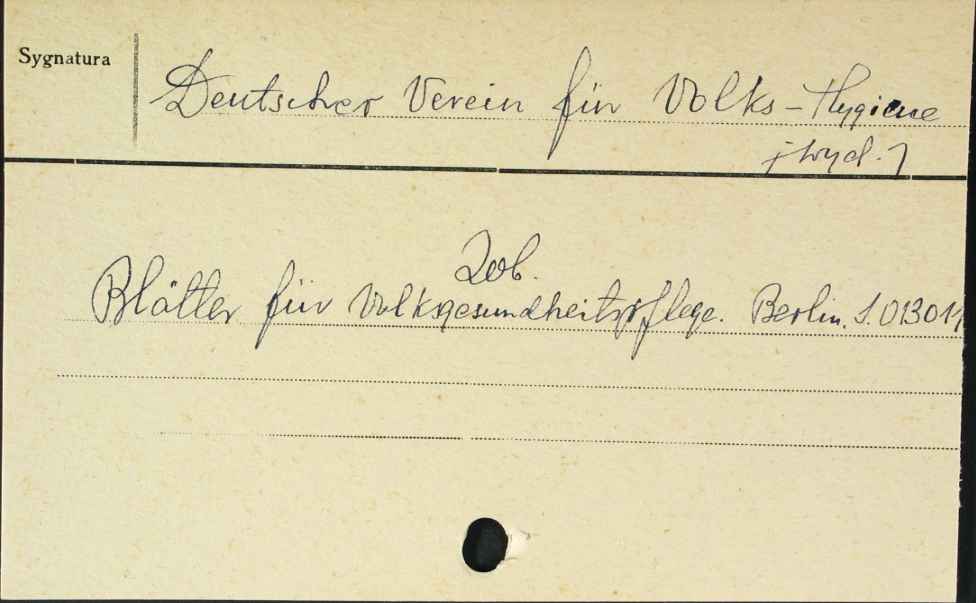 Sygnatura
Deutscher Verein für Volks-Hygiene
[wyd.]
Zob.
Blätter für Volksgesundheitspflege. Berlin. S. 013011